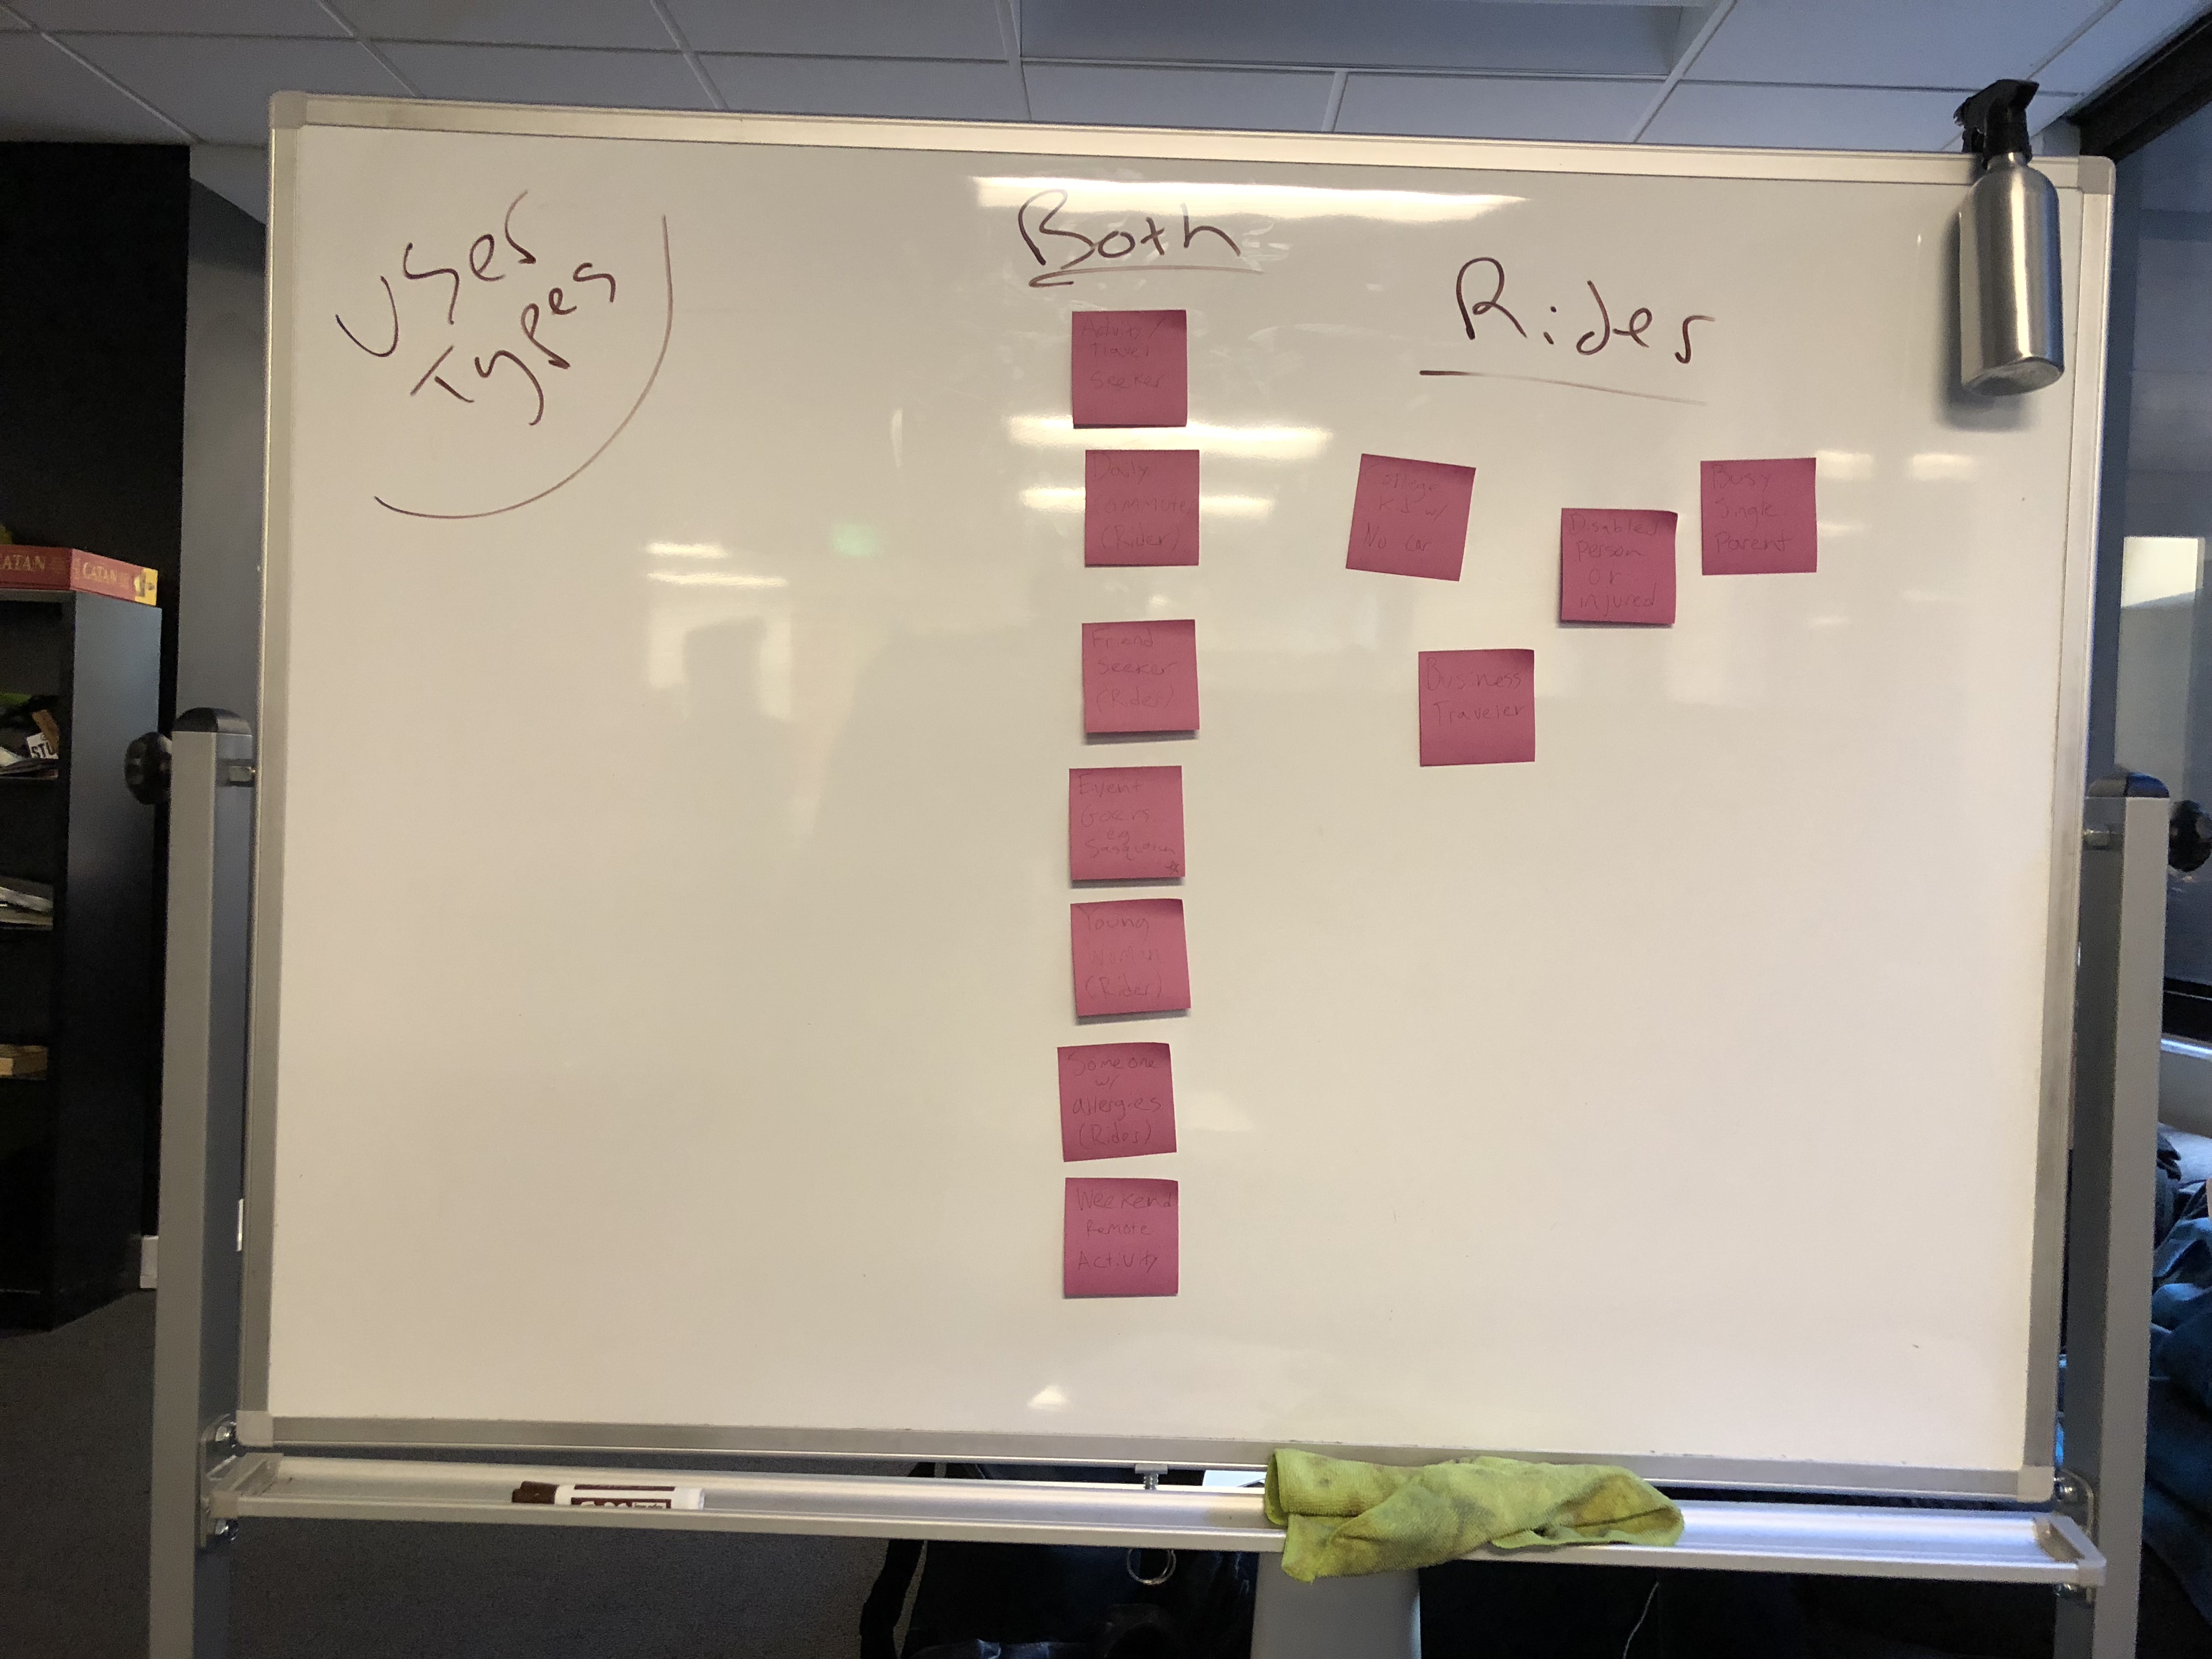 User
Types
Both
Rides
Travel
Seeker
Daily
Commute
(Rider)
Friend
Seeker
(Rider)
Event
Goers
eg
Young
Woman
(Rider)
Someone
w/
allergies
(Rider)
Weekend
Remote
Activity
College
Kid w/
No car
Disabled
person
or
injured
Busy
Single
Parent
Business
Traveler
CATAN
CATAN